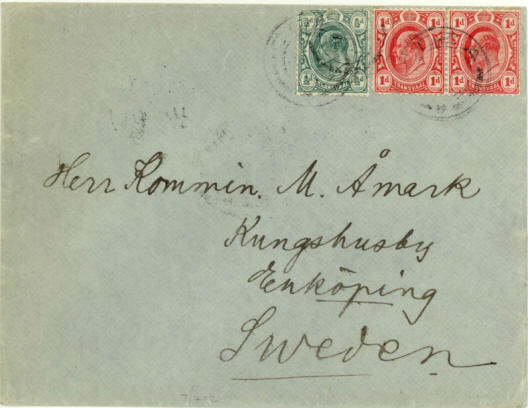 ½d ½d 1d 1d 1d 1d
TRANSVAAL TRANSVAAL TRANSVAAL
Herr Kommin. M. Åmark
Kungshusby
Enköping
Sweden